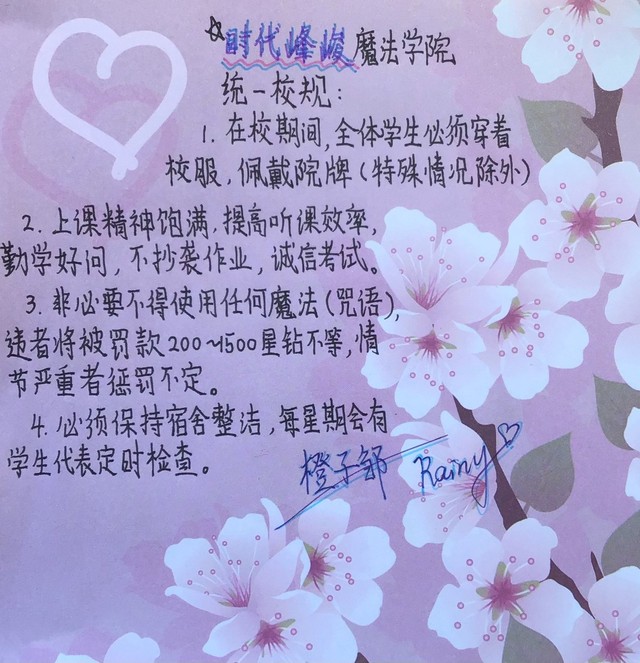 ☆时代峰峻魔法学院
统一校规：
1. 在校期间,全体学生必须穿着
校服,佩戴院牌(特殊情况除外)
2. 上课精神饱满,提高听课效率,
勤学好问,不抄袭作业,诚信考试。
3. 非必要不得使用任何魔法(咒语),
违者将被罚款200~1500星钻不等,情
节严重者惩罚不定。
4. 必须保持宿舍整洁,每星期会有
学生代表定时检查。
橙子郁 Rainy♡